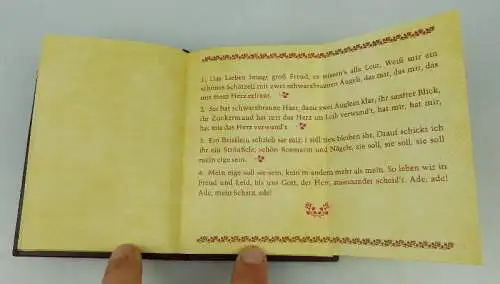 1. Das Lieben bringt groß Freud, es wissen's alle Leut. Weiß mir ein
schönes Schätzeli mit zwei schwarzbraunen Äugeli, das mir, das mir, das
mir mein Herz erfreut.
2. Sie hat schwarzbraune Haar, dazu zwei Äuglein klar, ihr sanfter Blick,
ihr Zuckermund hat mir das Herz im Leib verwund't, hat mir, hat mir,
hat mir das Herz verwund't.
3. Ein Brieflein schrieb sie mir, ich soll treu bleiben ihr. Drauf schick ich
ihr ein Sträußele, schön Rosmarin und Nägele, sie soll, sie soll, sie soll
mein eige sein.
4. Mein eige soll sie sein, kein'm andern mehr als mein. So leben wir in
Freud und Leid, bis uns Gott, der Herr, auseinander scheid't. Ade, ade!
Ade, mein Schatz, ade!